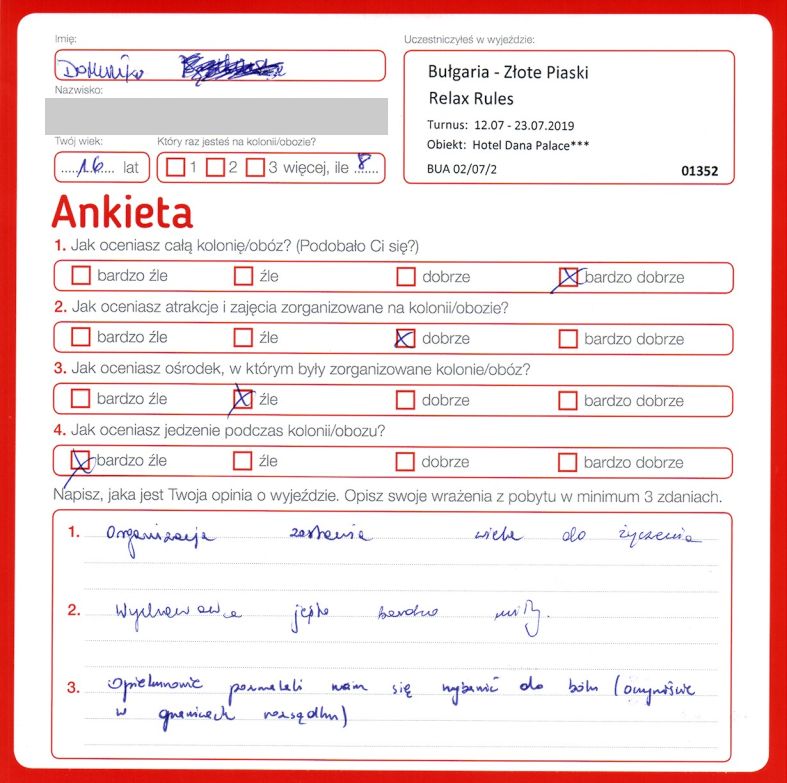 Imię:
Uczestniczyłeś w wyjeździe:
Dominika
Bułgaria - Złote Piaski
Relax Rules
Turnus: 12.07 - 23.07.2019
Obiekt: Hotel Dana Palace***
BUA 02/07/2 01352
Nazwisko:
Twój wiek: Który raz jesteś na kolonii/obozie?
16 lat 1 2 3 więcej, ile 8
Ankieta
1. Jak oceniasz całą kolonię/obóz? (Podobało Ci się?)
bardzo źle źle dobrze bardzo dobrze
2. Jak oceniasz atrakcje i zajęcia zorganizowane na kolonii/obozie?
bardzo źle źle dobrze bardzo dobrze
3. Jak oceniasz ośrodek, w którym były zorganizowane kolonie/obóz?
bardzo źle źle dobrze bardzo dobrze
4. Jak oceniasz jedzenie podczas kolonii/obozu?
bardzo źle źle dobrze bardzo dobrze
Napisz, jaka jest Twoja opinia o wyjeździe. Opisz swoje wrażenia z pobytu w minimum 3 zdaniach.
1. Organizacja zostawia wiele do życzenia
2. bardzo miły.
3. Opiekunowie pozwalali nam się wybawić do bólu (oczywiście
w granicach rozsądku)